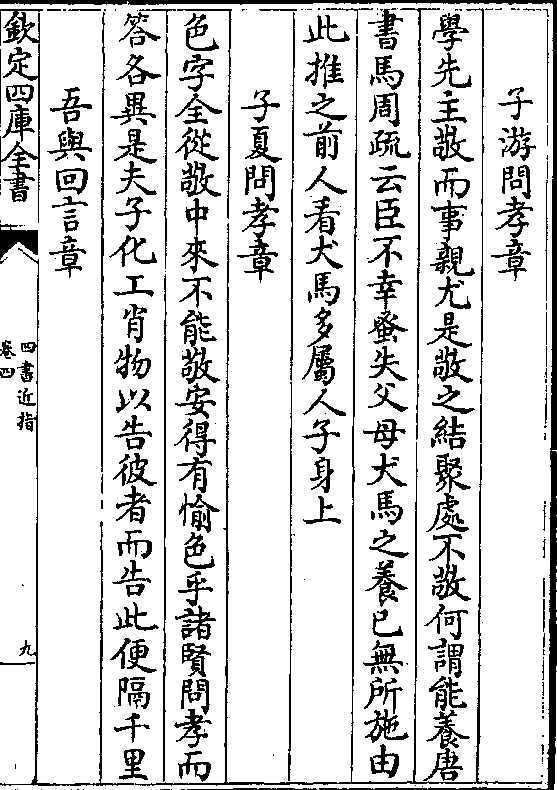 子游問孝章
學先主敬而事親尤是敬之結聚處不敬何謂能養唐
書馬周疏云臣不幸蚤失父母犬馬之養已無所施由
此推之前人看犬馬多屬人子身上
子夏問孝章
色字全從敬中來不能敬安得有愉色乎諸賢問孝而
答各異是夫子化工肖物以告彼者而告此便隔千里
吾與回言章
欽定四庫全書
四書近指
卷四
九